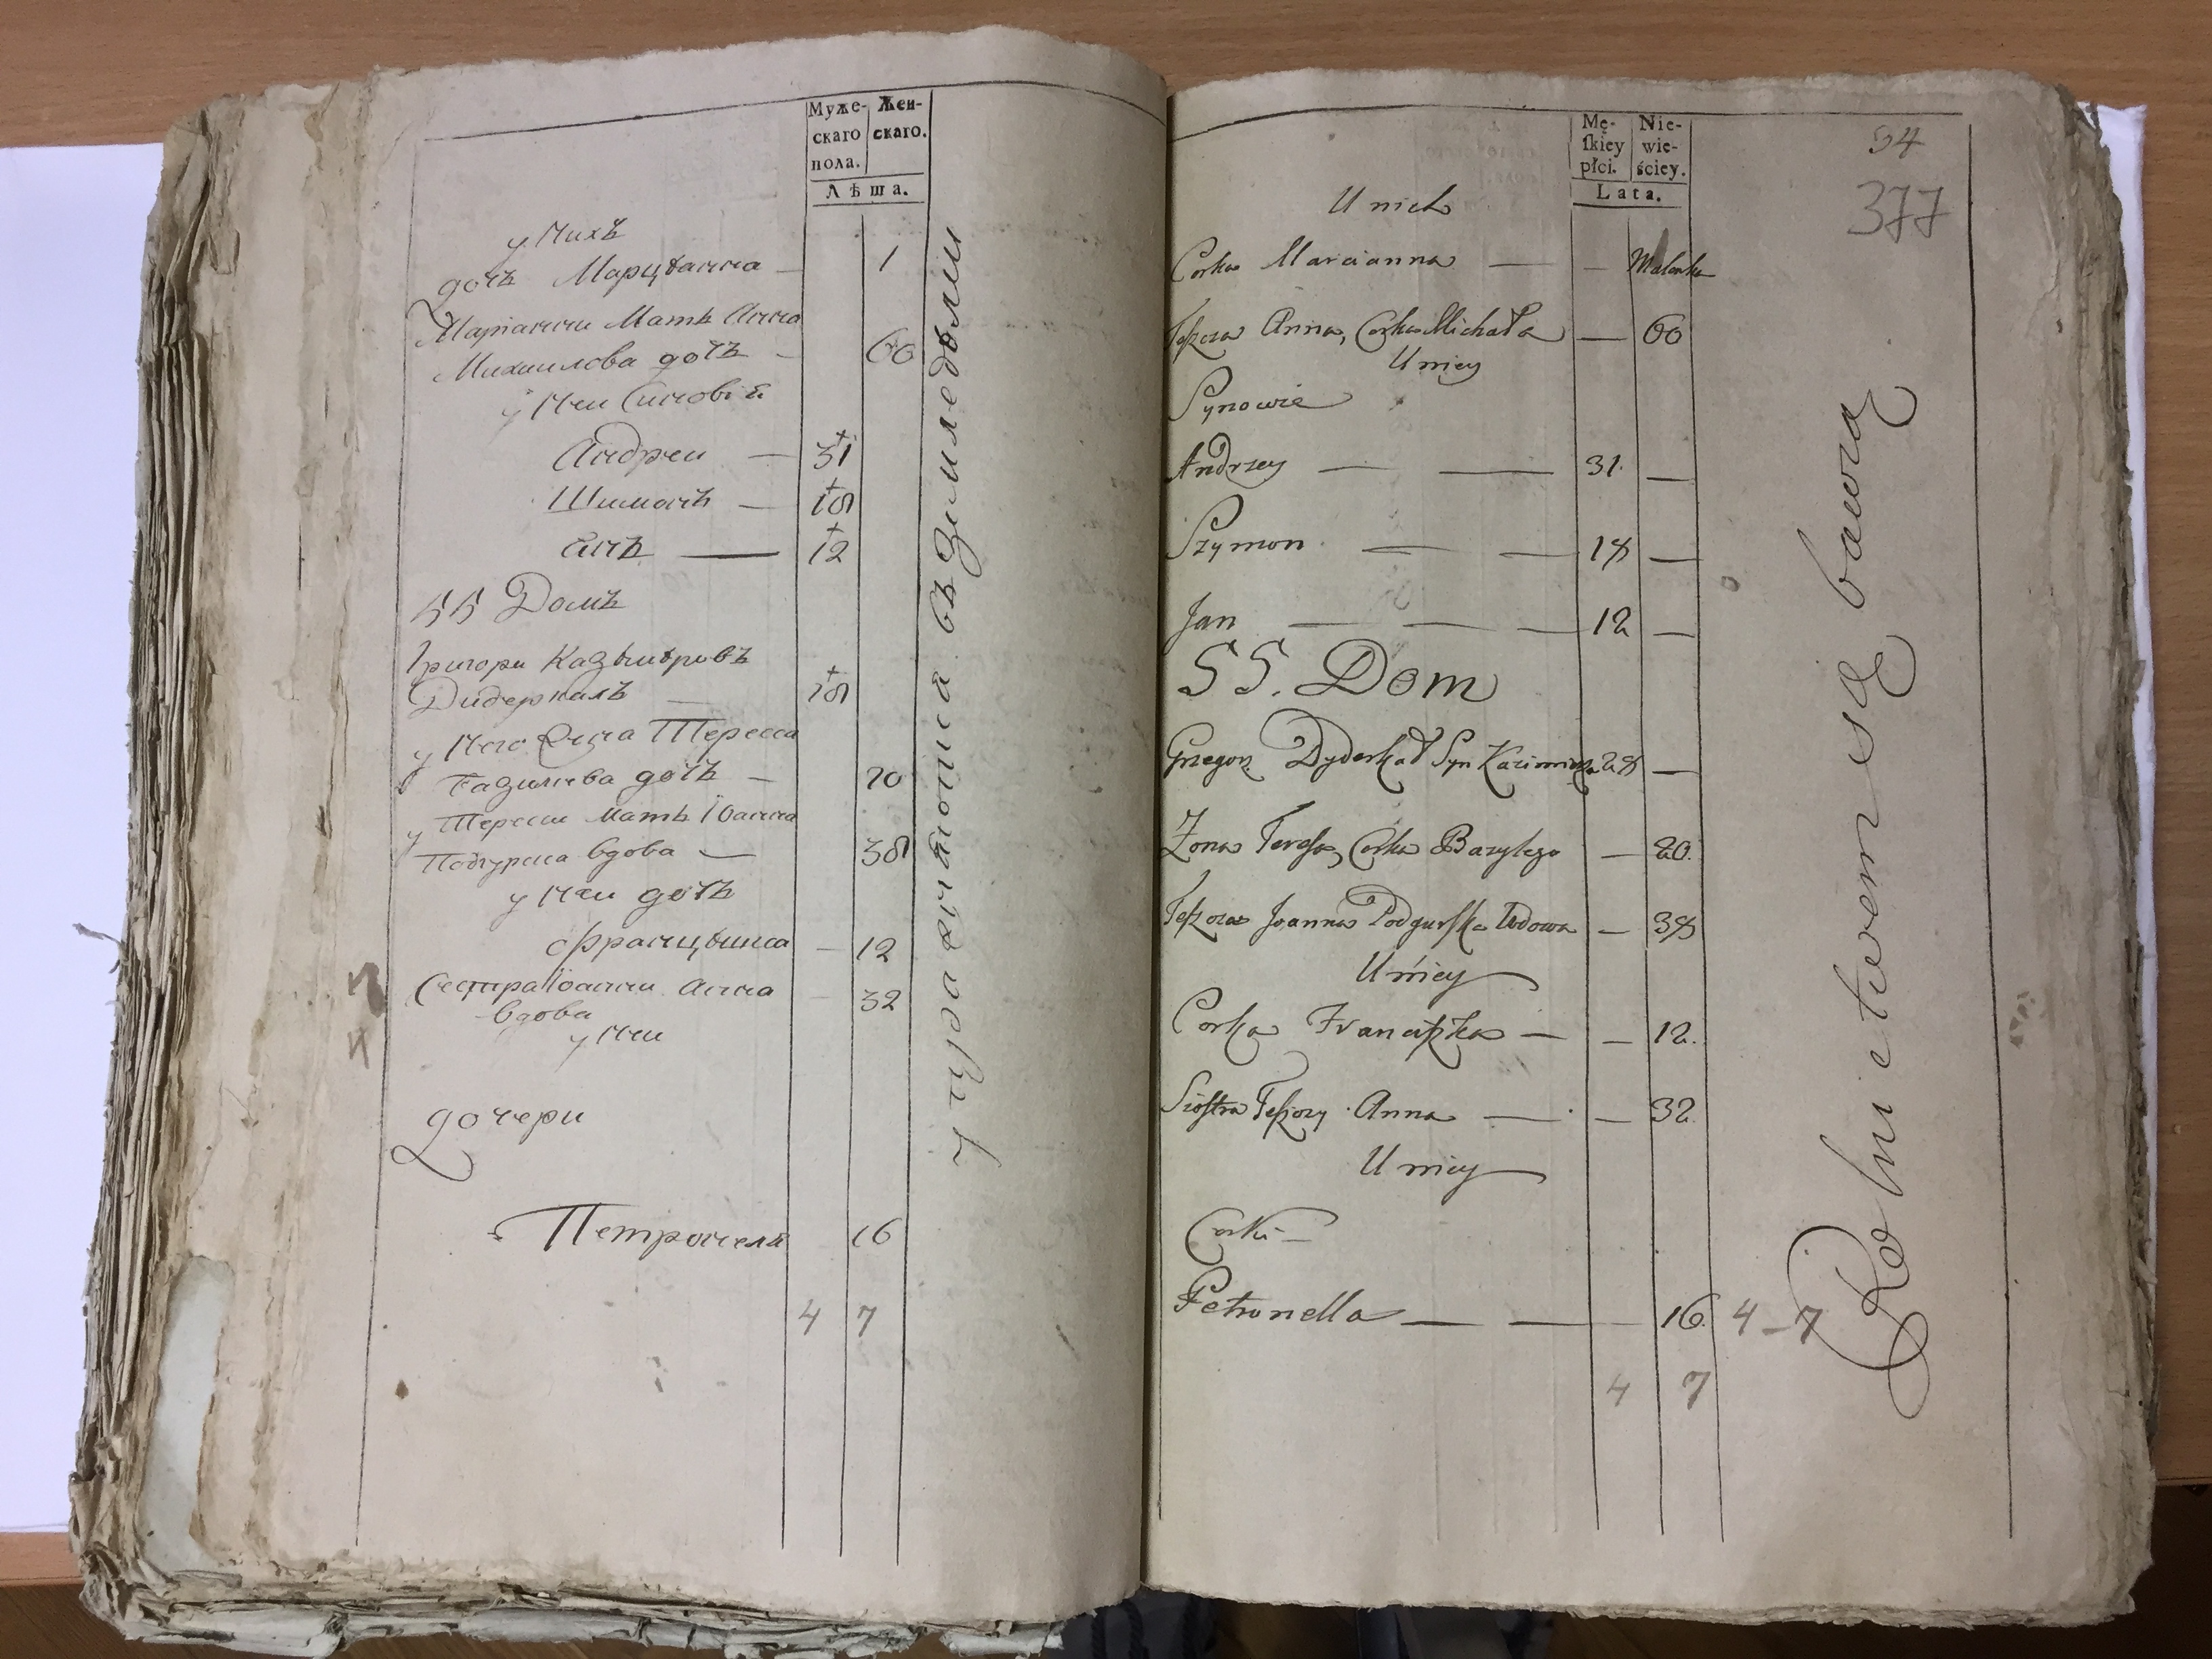 Муже-
скаго
пола.
Жен-
скаго.
Лѣта.
у Нихъ
дочъ Марцианна — 1
Марianни Мать Анна
Михаилова дочъ — 60
у Неи Синовiѣ
Андреи — 31
Шимонъ — 18
Янъ — 12
55 Домъ
Григори Казимировъ
Дидеркалъ — 18
у Него Жена Тересса
Базилева дочъ — 20
у Тереси мать Iоанна
Подгурска вдова — 38
у Неи дочъ
Францишка — 12
Сестра Iоанни Анна 32
вдова
у Неи
дочери
Петронеля 16
4 7
Mę-
skiey
płci.
Nie-
wie-
ściey.
Lata.
54
377
U nich
Corka Marcianna — — Malenka
Teszcza Anna, Corka Michała — 60
U niey
Synowie
Andrzey — — 31. —
Szymon — — 18 —
Jan — — — 12 —
55. Dom
Grzegorz Dyderkał Syn Kazimierza 28 —
Żona Teressa, Corka Bazylego — 20.
Teszcza Joanna Podgurska Wdowa — 38
U niey
Corka Franciszka — — 12.
Siostra Teszczy Anna — — 32.
U niey
Corki —
Petronella — — 16. 4 – 7
4 7
Rolnictwem się bawią